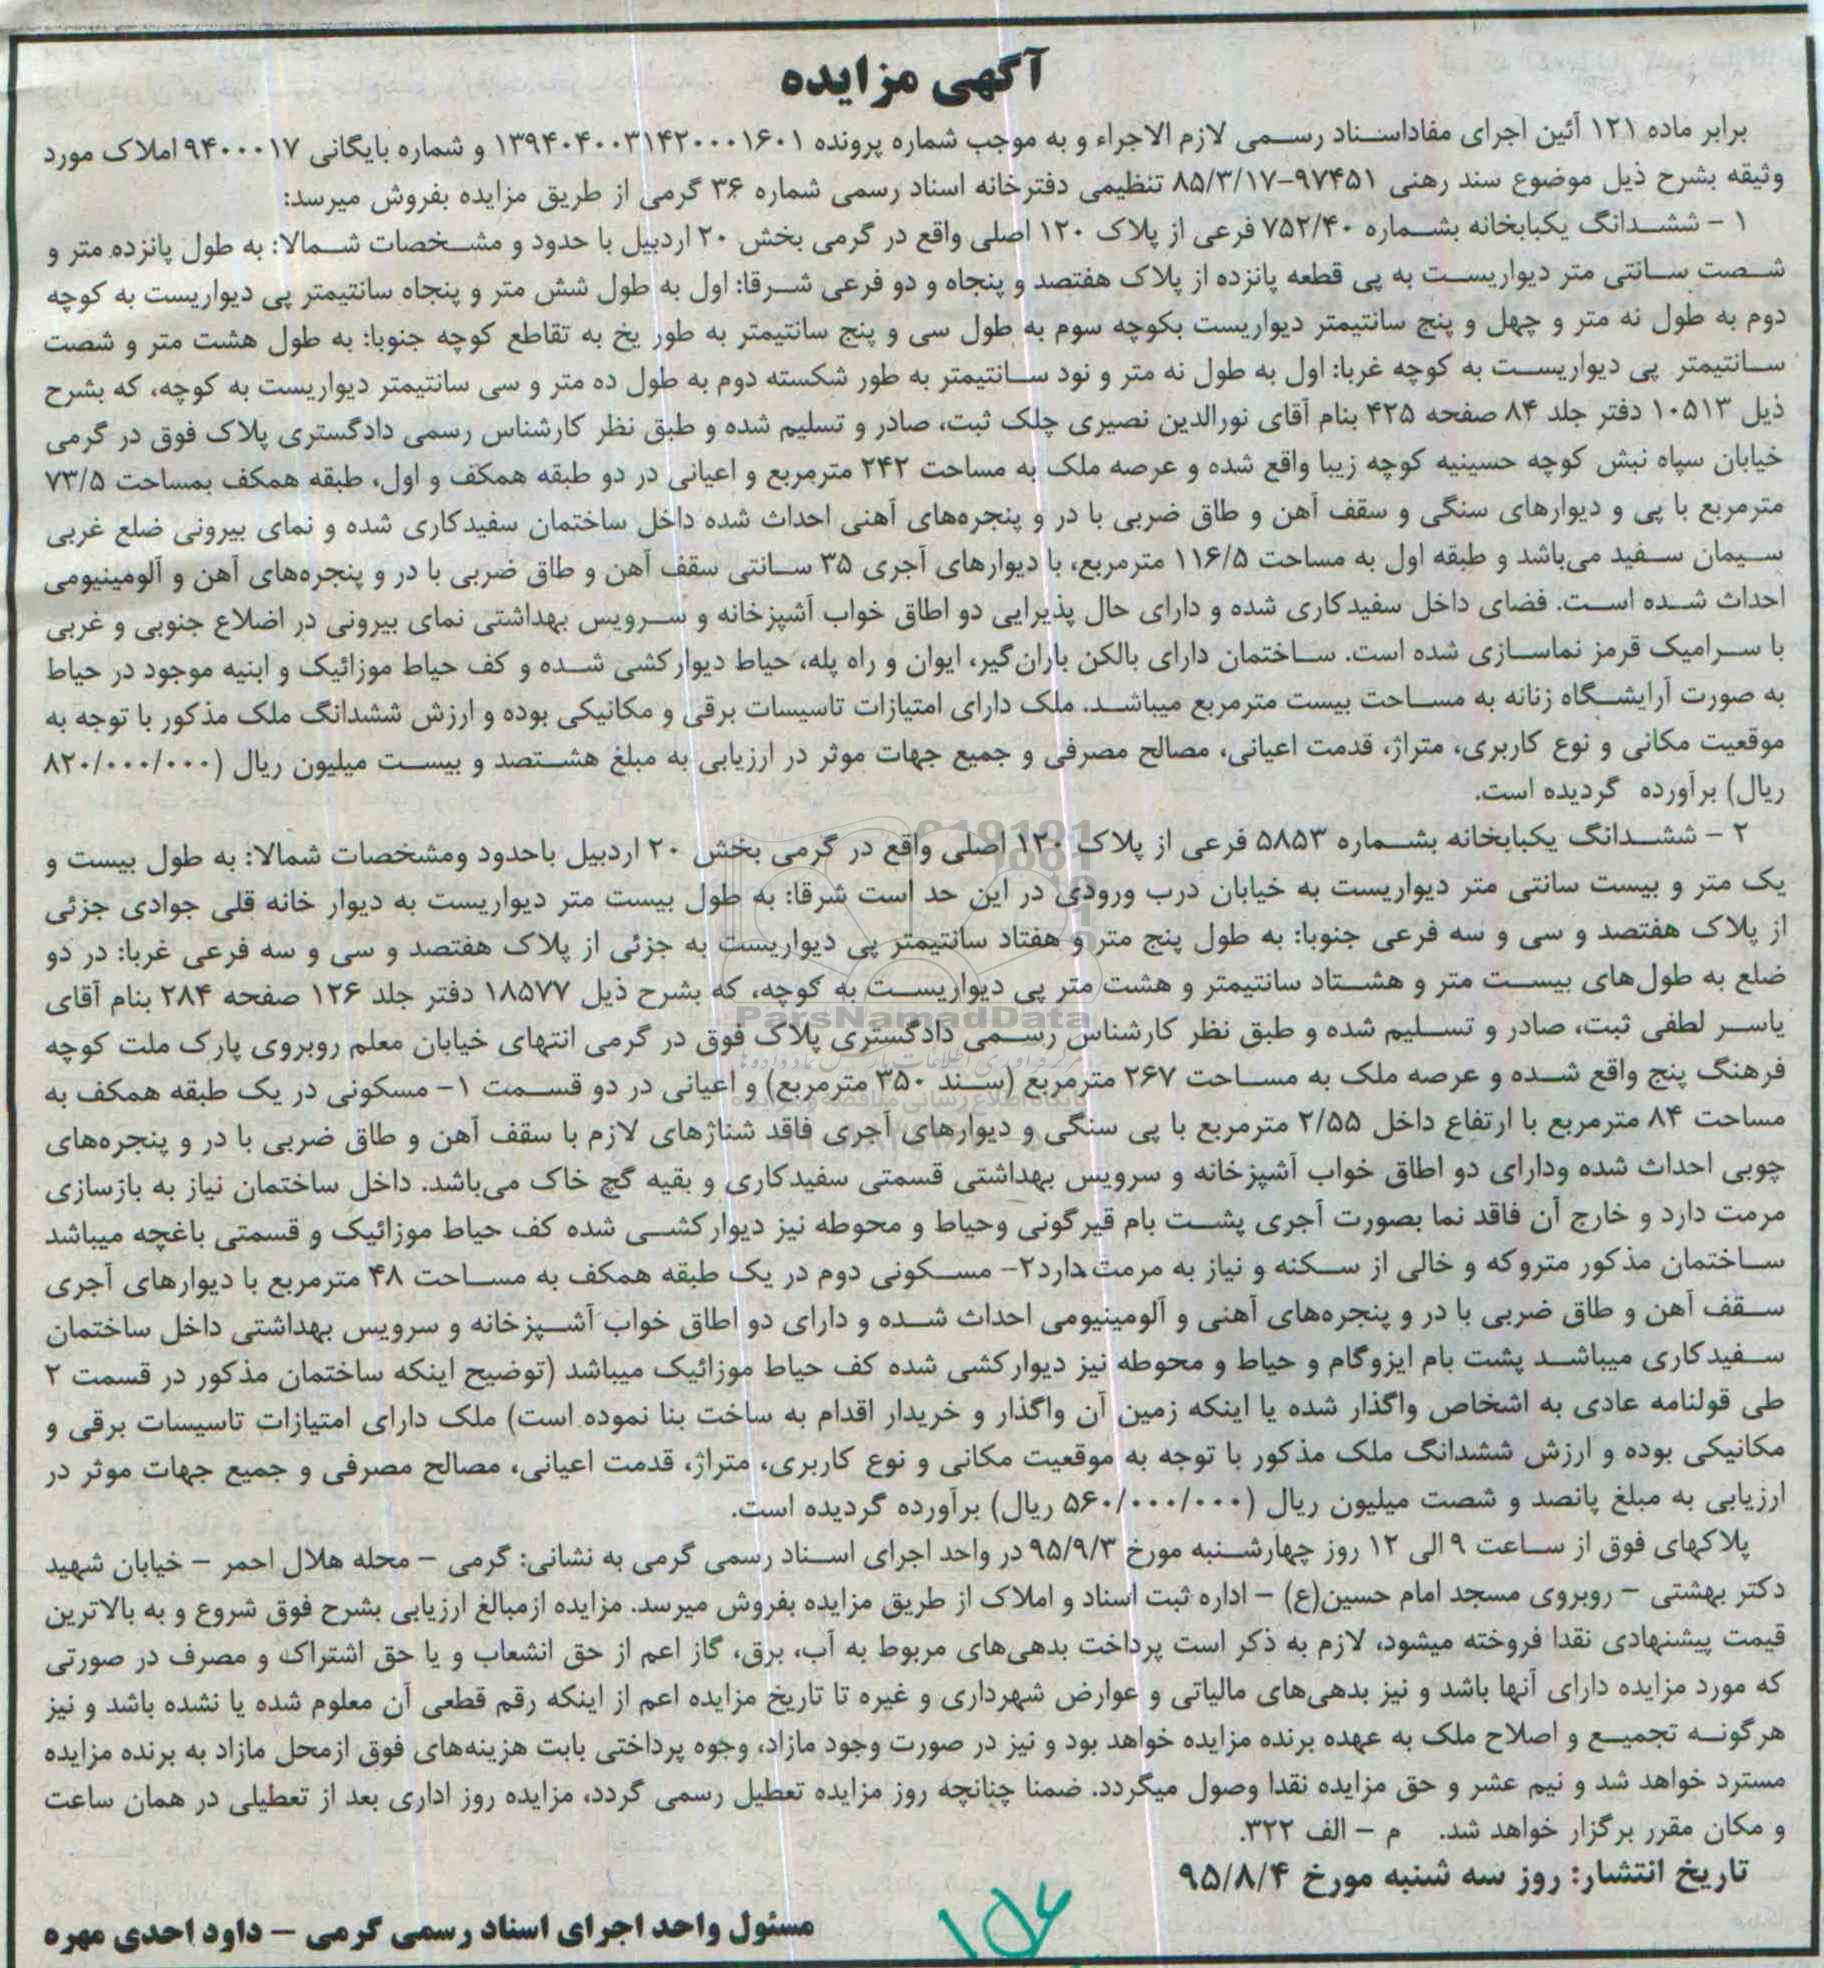 آگهی مزایده
برابر ماده ۱۲۱ آئین اجرای مفاداسناد رسمی لازم الاجراء و به موجب شماره پرونده ۱۳۹۴۰۴۰۰۳۱۴۲۰۰۰۱۶۰۱ و شماره بایگانی ۹۴۰۰۰۱۷ املاک مورد
وثیقه بشرح ذیل موضوع سند رهنی ۹۷۴۵۱-۸۵/۳/۱۷ تنظیمی دفترخانه اسناد رسمی شماره ۳۶ گرمی از طریق مزایده بفروش میرسد:
۱ - ششدانگ یکبابخانه بشماره ۷۵۲/۴۰ فرعی از پلاک ۱۲۰ اصلی واقع در گرمی بخش ۲۰ اردبیل با حدود و مشخصات شمالا: به طول پانزده متر و
شصت سانتی متر دیواریست به پی قطعه پانزده از پلاک هفتصد و پنجاه و دو فرعی شرقا: اول به طول شش متر و پنجاه سانتیمتر پی دیواریست به کوچه
دوم به طول نه متر و چهل و پنج سانتیمتر دیواریست بکوچه سوم به طول سی و پنج سانتیمتر به طور یخ به تقاطع کوچه جنوبا: به طول هشت متر و شصت
سانتیمتر پی دیواریست به کوچه غربا: اول به طول نه متر و نود سانتیمتر به طور شکسته دوم به طول ده متر و سی سانتیمتر دیواریست به کوچه، که بشرح
ذیل ۱۰۵۱۳ دفتر جلد ۸۴ صفحه ۴۲۵ بنام آقای نورالدین نصیری چلک ثبت، صادر و تسلیم شده و طبق نظر کارشناس رسمی دادگستری پلاک فوق در گرمی
خیابان سپاه نبش کوچه حسینیه کوچه زیبا واقع شده و عرصه ملک به مساحت ۲۴۲ مترمربع و اعیانی در دو طبقه همکف و اول، طبقه همکف بمساحت ۷۳/۵
مترمربع با پی و دیوارهای سنگی و سقف آهن و طاق ضربی با در و پنجره‌های آهنی احداث شده داخل ساختمان سفیدکاری شده و نمای بیرونی ضلع غربی
سیمان سفید می‌باشد و طبقه اول به مساحت ۱۱۶/۵ مترمربع، با دیوارهای آجری ۳۵ سانتی سقف آهن و طاق ضربی با در و پنجره‌های آهن و آلومینیومی
احداث شده است. فضای داخل سفیدکاری شده و دارای حال پذیرایی دو اطاق خواب آشپزخانه و سرویس بهداشتی نمای بیرونی در اضلاع جنوبی و غربی
با سرامیک قرمز نماسازی شده است. ساختمان دارای بالکن باران‌گیر، ایوان و راه پله، حیاط دیوارکشی شده و کف حیاط موزائیک و ابنیه موجود در حیاط
به صورت آرایشگاه زنانه به مساحت بیست مترمربع میباشد. ملک دارای امتیازات تاسیسات برقی و مکانیکی بوده و ارزش ششدانگ ملک مذکور با توجه به
موقعیت مکانی و نوع کاربری، متراژ، قدمت اعیانی، مصالح مصرفی و جمیع جهات موثر در ارزیابی به مبلغ هشتصد و بیست میلیون ریال (۸۲۰/۰۰۰/۰۰۰
ریال) برآورده گردیده است.
۲ - ششدانگ یکبابخانه بشماره ۵۸۵۳ فرعی از پلاک ۱۲۰ اصلی واقع در گرمی بخش ۲۰ اردبیل باحدود ومشخصات شمالا: به طول بیست و
یک متر و بیست سانتی متر دیواریست به خیابان درب ورودی در این حد است شرقا: به طول بیست متر دیواریست به دیوار خانه قلی جوادی جزئی
از پلاک هفتصد و سی و سه فرعی جنوبا: به طول پنج متر و هفتاد سانتیمتر پی دیواریست به جزئی از پلاک هفتصد و سی و سه فرعی غربا: در دو
ضلع به طول‌های بیست متر و هشتاد سانتیمتر و هشت متر پی دیواریست به کوچه، که بشرح ذیل ۱۸۵۷۷ دفتر جلد ۱۲۶ صفحه ۲۸۴ بنام آقای
یاسر لطفی ثبت، صادر و تسلیم شده و طبق نظر کارشناس رسمی دادگستری پلاک فوق در گرمی انتهای خیابان معلم روبروی پارک ملت کوچه
فرهنگ پنج واقع شده و عرصه ملک به مساحت ۲۶۷ مترمربع (سند ۳۵۰ مترمربع) و اعیانی در دو قسمت ۱- مسکونی در یک طبقه همکف به
مساحت ۸۴ مترمربع با ارتفاع داخل ۲/۵۵ مترمربع با پی سنگی و دیوارهای آجری فاقد شناژهای لازم با سقف آهن و طاق ضربی با در و پنجره‌های
چوبی احداث شده ودارای دو اطاق خواب آشپزخانه و سرویس بهداشتی قسمتی سفیدکاری و بقیه گچ خاک می‌باشد. داخل ساختمان نیاز به بازسازی
مرمت دارد و خارج آن فاقد نما بصورت آجری پشت بام قیرگونی وحیاط و محوطه نیز دیوارکشی شده کف حیاط موزائیک و قسمتی باغچه میباشد
ساختمان مذکور متروکه و خالی از سکنه و نیاز به مرمت دارد۲- مسکونی دوم در یک طبقه همکف به مساحت ۴۸ مترمربع با دیوارهای آجری
سقف آهن و طاق ضربی با در و پنجره‌های آهنی و آلومینیومی احداث شده و دارای دو اطاق خواب آشپزخانه و سرویس بهداشتی داخل ساختمان
سفیدکاری میباشد پشت بام ایزوگام و حیاط و محوطه نیز دیوارکشی شده کف حیاط موزائیک میباشد (توضیح اینکه ساختمان مذکور در قسمت ۲
طی قولنامه عادی به اشخاص واگذار شده یا اینکه زمین آن واگذار و خریدار اقدام به ساخت بنا نموده است) ملک دارای امتیازات تاسیسات برقی و
مکانیکی بوده و ارزش ششدانگ ملک مذکور با توجه به موقعیت مکانی و نوع کاربری، متراژ، قدمت اعیانی، مصالح مصرفی و جمیع جهات موثر در
ارزیابی به مبلغ پانصد و شصت میلیون ریال (۵۶۰/۰۰۰/۰۰۰ ریال) برآورده گردیده است.
پلاکهای فوق از ساعت ۹ الی ۱۲ روز چهارشنبه مورخ ۹۵/۹/۳ در واحد اجرای اسناد رسمی گرمی به نشانی: گرمی - محله هلال احمر - خیابان شهید
دکتر بهشتی - روبروی مسجد امام حسین(ع) - اداره ثبت اسناد و املاک از طریق مزایده بفروش میرسد. مزایده ازمبالغ ارزیابی بشرح فوق شروع و به بالاترین
قیمت پیشنهادی نقدا فروخته میشود، لازم به ذکر است پرداخت بدهی‌های مربوط به آب، برق، گاز اعم از حق انشعاب و یا حق اشتراک و مصرف در صورتی
که مورد مزایده دارای آنها باشد و نیز بدهی‌های مالیاتی و عوارض شهرداری و غیره تا تاریخ مزایده اعم از اینکه رقم قطعی آن معلوم شده یا نشده باشد و نیز
هرگونه تجمیع و اصلاح ملک به عهده برنده مزایده خواهد بود و نیز در صورت وجود مازاد، وجوه پرداختی بابت هزینه‌های فوق ازمحل مازاد به برنده مزایده
مسترد خواهد شد و نیم عشر و حق مزایده نقدا وصول میگردد. ضمنا چنانچه روز مزایده تعطیل رسمی گردد، مزایده روز اداری بعد از تعطیلی در همان ساعت
و مکان مقرر برگزار خواهد شد. م - الف ۳۲۲.
تاریخ انتشار: روز سه شنبه مورخ ۹۵/۸/۴
مسئول واحد اجرای اسناد رسمی گرمی - داود احدی مهره
ParsNamadData
پایگاه اطلاع رسانی مناقصه و مزایده